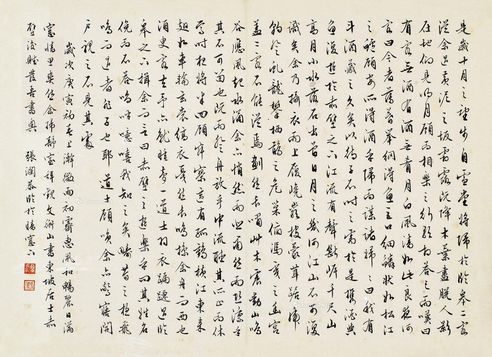 是歲十月之望步自雪堂將歸於臨皋二客
從余過黃泥之坂霜露既降木葉盡脫人影
在地仰見明月顧而樂之行歌相答已而歎曰
有客無酒有酒無肴月白風清如此良夜何
客曰今者薄暮舉網得魚巨口細鱗狀如松江
之鱸顧安所得酒乎歸而謀諸婦婦曰我有
斗酒藏之久矣以待子不時之需於是攜酒與
魚復遊於赤壁之下江流有聲斷岸千尺山
高月小水落石出曾日月之幾何江山不可復
識矣余乃攝衣而上履巉巖披蒙茸踞虎
豹登虬龍攀棲鶻之危巢俯馮夷之幽宮
蓋二客不能從焉劃然長嘯草木震動山鳴
谷應風起水涌余亦悄然而悲肅然而恐凜乎
其不可留也反而登舟放乎中流聽其所止而休
焉時夜將半四顧寂寥適有孤鶴橫江東來
翅如車輪玄裳縞衣戛然長鳴掠余舟而西也
須臾客去余亦就睡夢一道士羽衣蹁躚過臨
皋之下揖余而言曰赤壁之遊樂乎問其姓名
俛而不答嗚呼噫嘻我知之矣疇昔之夜飛
鳴而過我者非子也耶道士顧笑余亦驚寤開
戶視之不見其處
歲次庚寅初春上澣微雨初霽惠風和暢麗日滿
窗情思文衡山書東坡居士赤
壁後賦書興 張潤於窗下